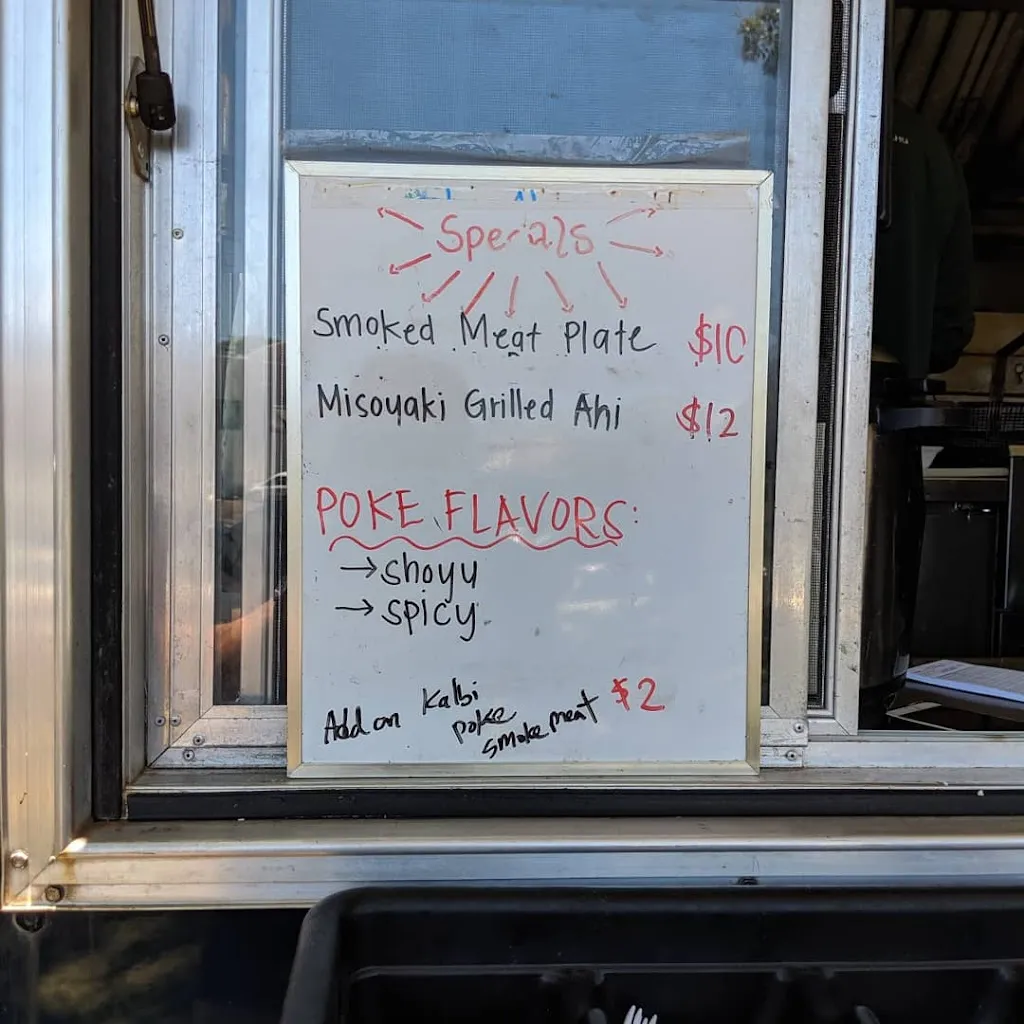 Specials
Smoked Meat Plate $10
Misoyaki Grilled Ahi $12
POKE FLAVORS:
→shoyu
→spicy
Add on Kalbi $2
poke
smoke meat